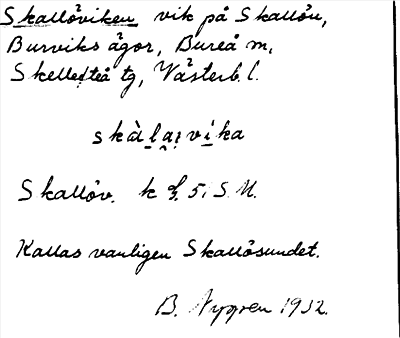 Skallöviken vik på Skallön,
Burviks ägor, Bureå sn,
Skellefteå tg, Västerb. l.
skàlaivika
Skallöv. k 5; S. M.
Kallas vanligen Skallösundet.
B. Nygren 1932.